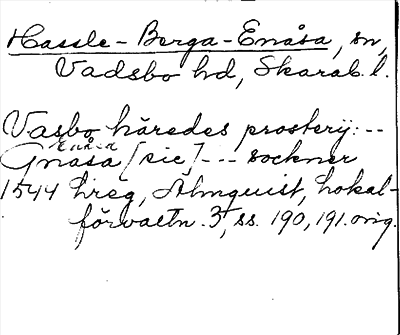 Hassle-Berga-Enåsa, sn,
Vadsbo hd, Skarab. l.
Vasbo häredes prosterij: --
Enåsa
Gnasa [sic] --- sockner
1544 hreg, Almquist, Lokal-
förvaltn. 3, ss. 190, 191. orig.